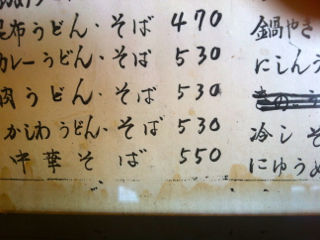 昆布うどん・そば 470
カレーうどん・そば 530
肉うどん・そば 530
かしわうどん・そば 530
中華そば 550
鍋やき
にしんう
冷しそ
にゅうめ